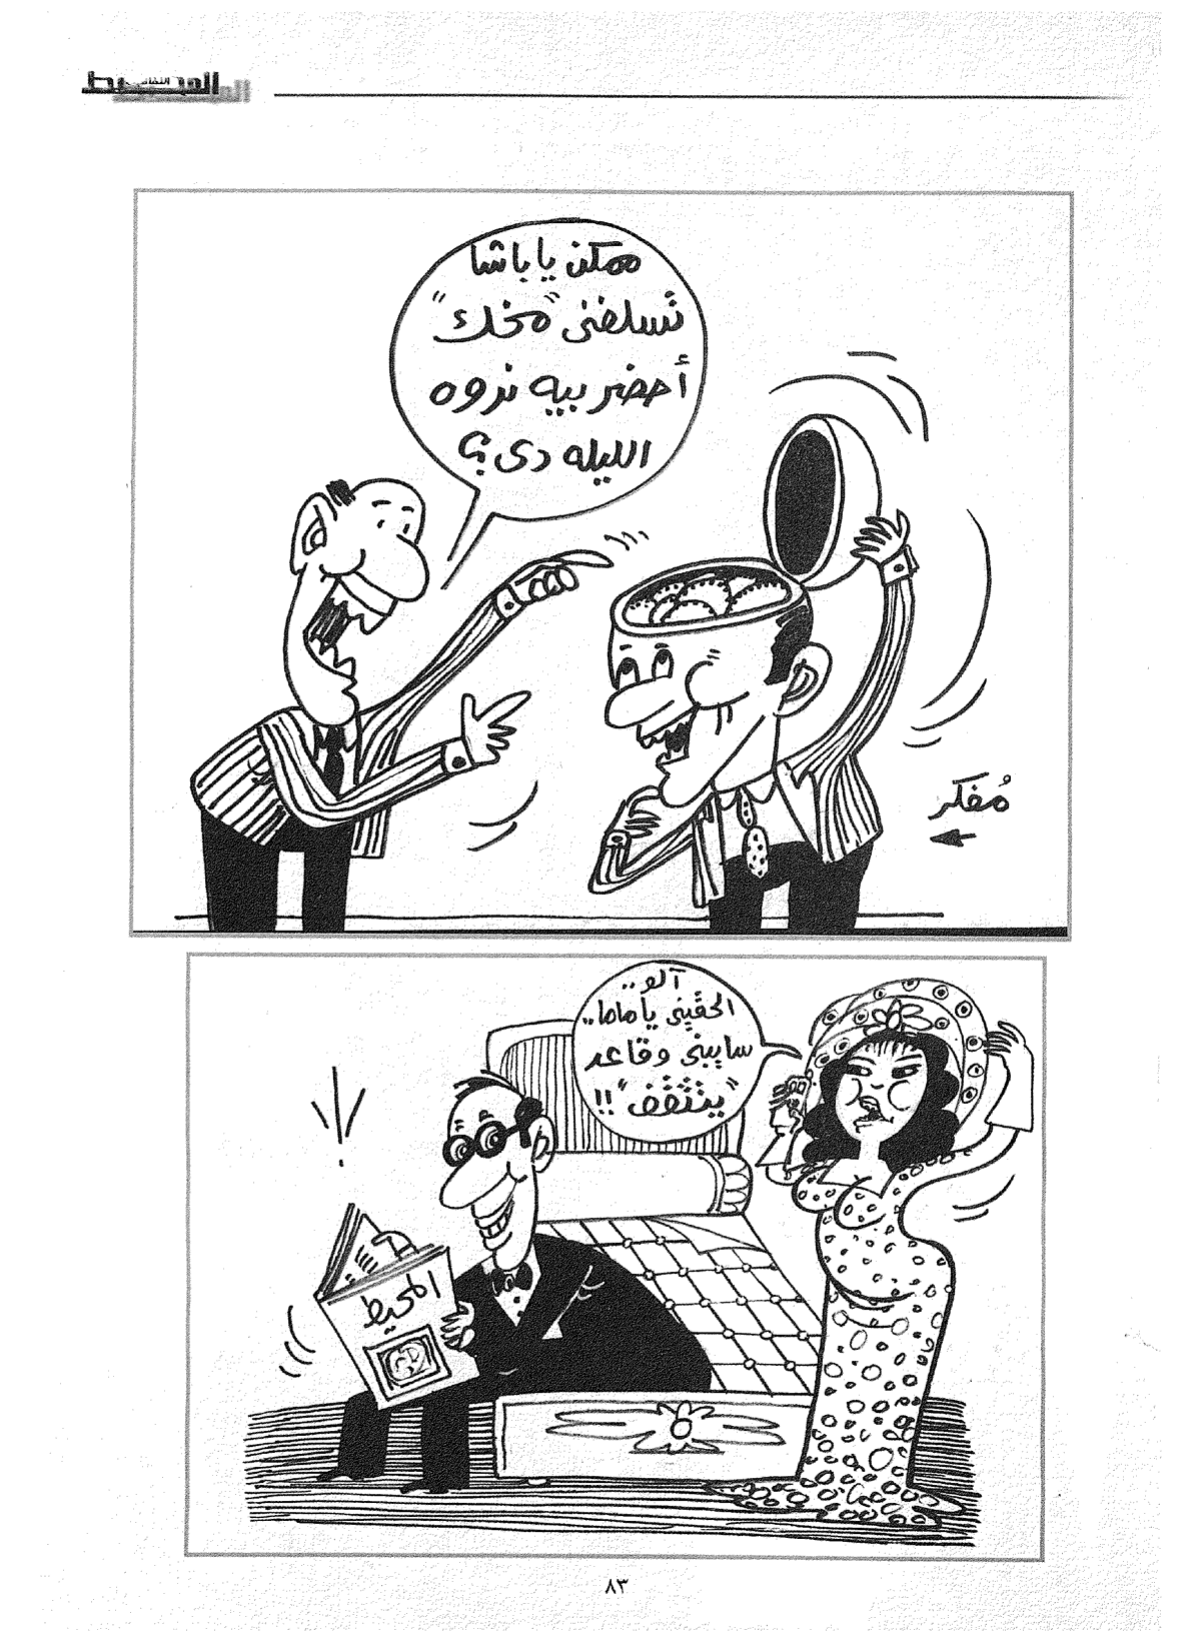 المحيط
الثقافى
ممكن يا باشا
تسلفنى "مخك"
أحضر بيه ندوه
الليله دى؟
مُفكر
آلو..
الحقينى يا ماما..
سايبنى وقاعد
"يتثقف"!!
المحيط
٨٣